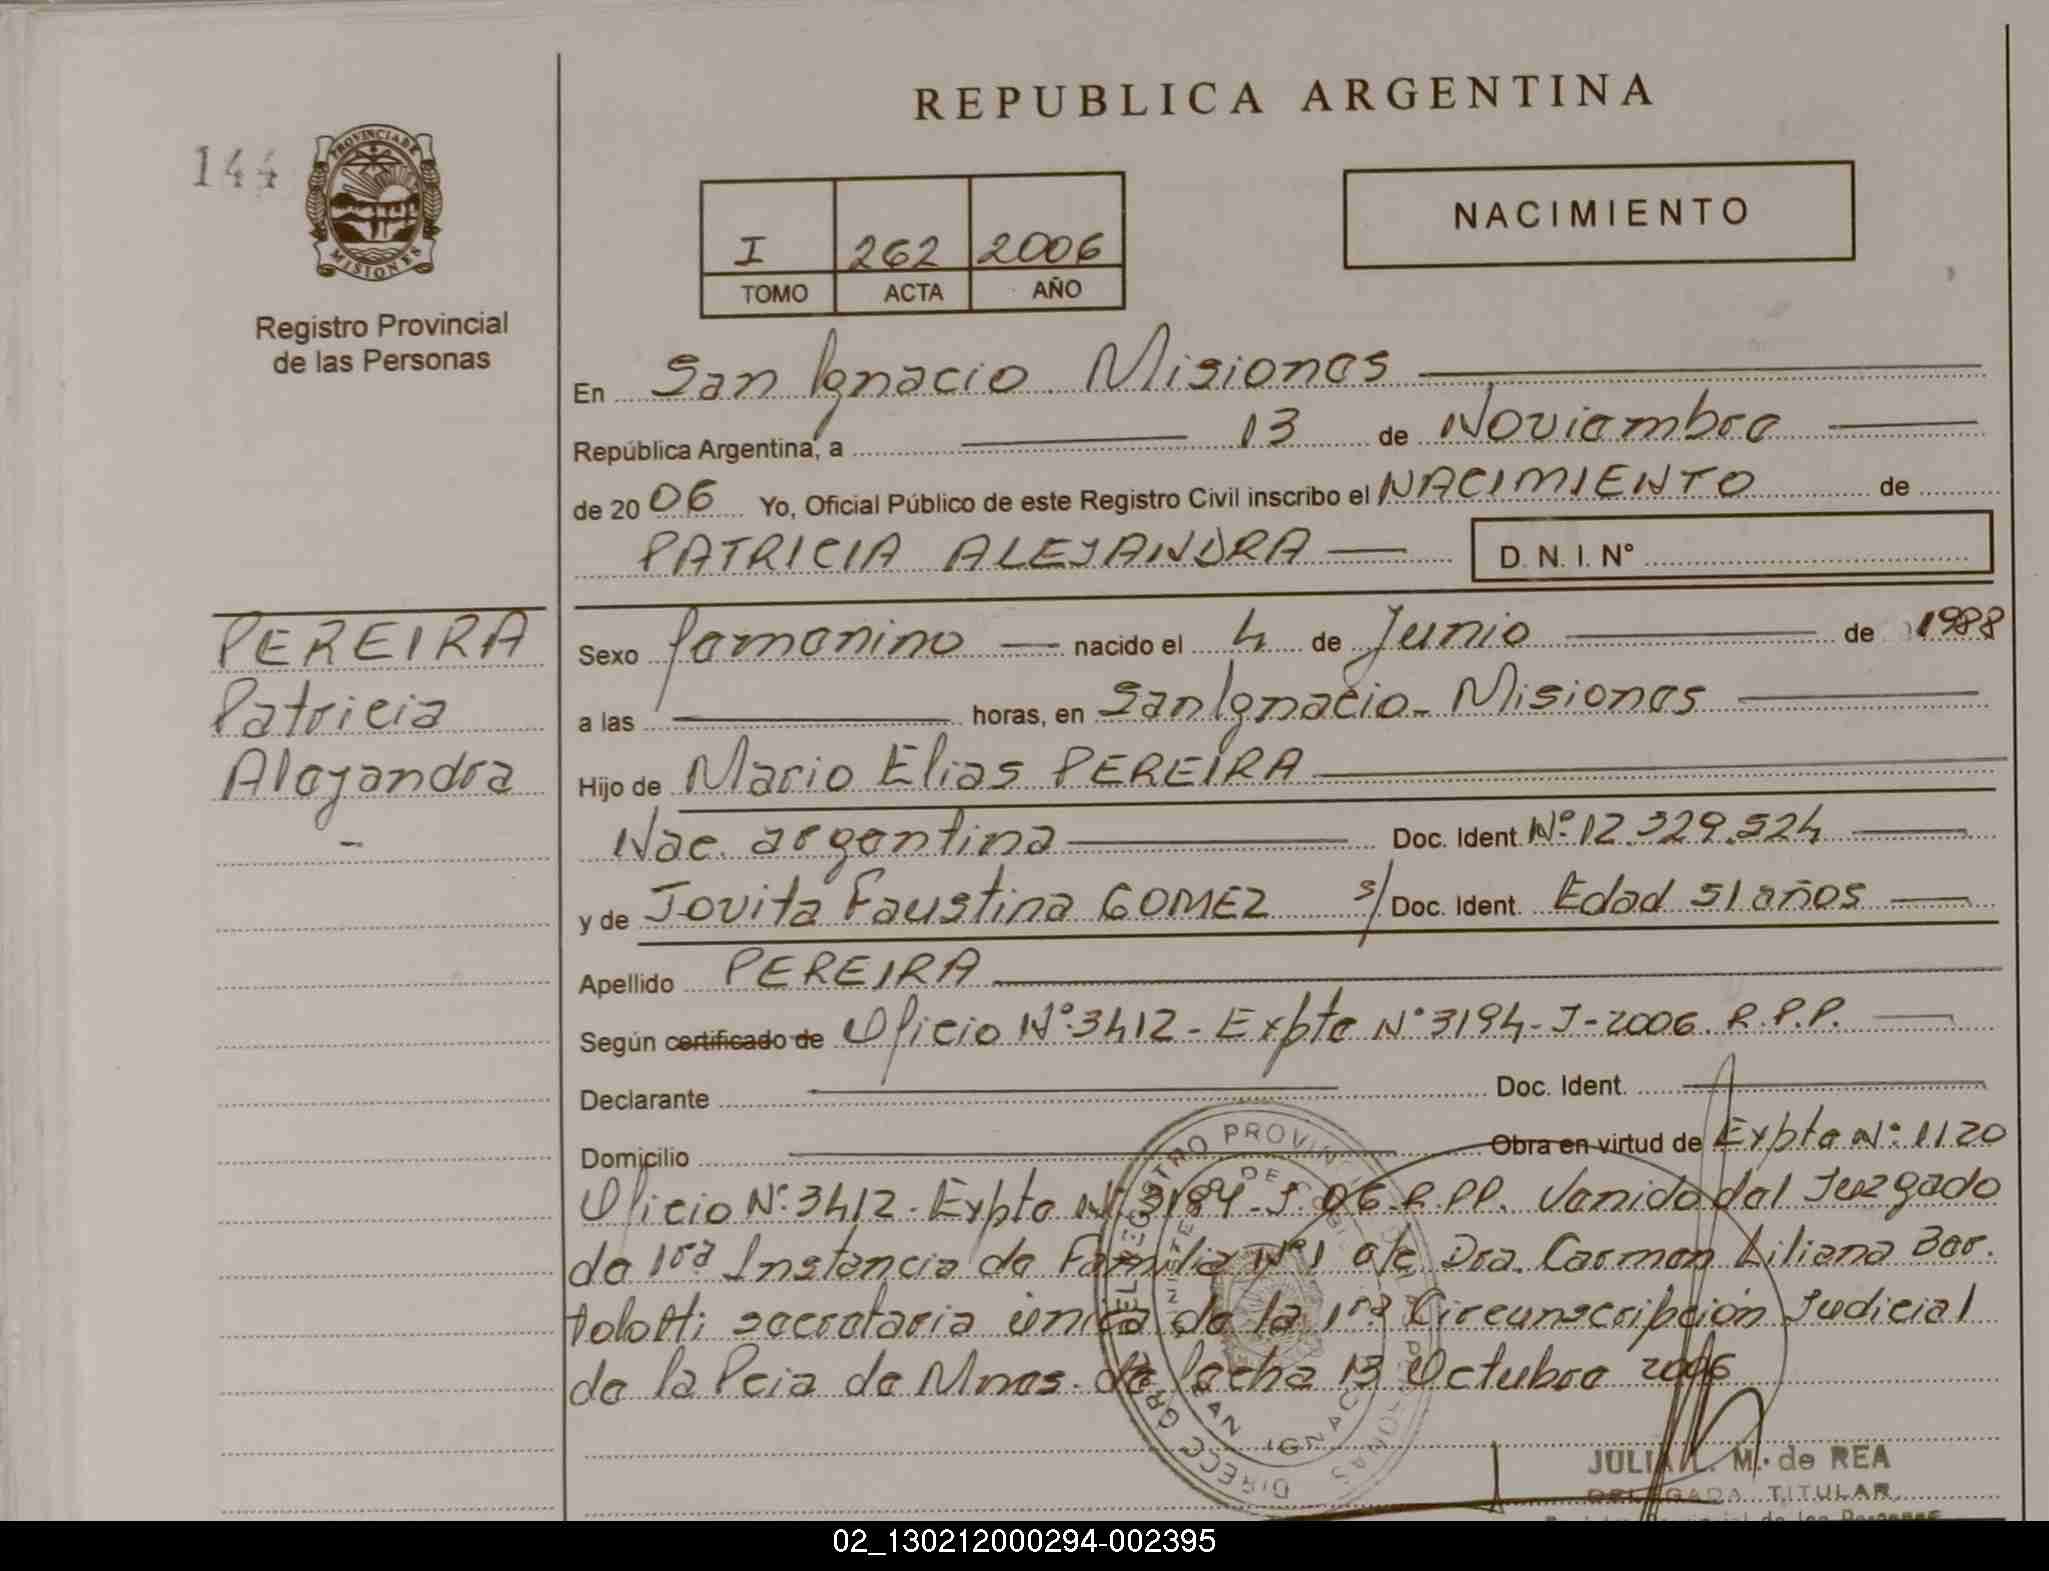 REPUBLICA ARGENTINA
144
PROVINCIA DE MISIONES
Registro Provincial
de las Personas
I 262 2006
TOMO ACTA AÑO
NACIMIENTO
En San Ignacio Misiones
República Argentina, a 13 de Noviembre
de 2006 Yo, Oficial Público de este Registro Civil inscribo el NACIMIENTO de
PATRICIA ALEJANDRA D. N. I. N°
PEREIRA
Patricia
Alejandra
Sexo femenino nacido el 4 de Junio de 1988
a las horas, en San Ignacio - Misiones
Hijo de Mario Elias PEREIRA
Nac. argentina Doc. Ident. N° 12.329.524
y de Jovita Faustina GOMEZ s/ Doc. Ident. Edad 51 años
Apellido PEREIRA
Según certificado de Oficio N° 3412 - Expte N° 3194 - J - 2006. R.P.P.
Declarante Doc. Ident.
Domicilio Obra en virtud de Expte N° 1120
Oficio N° 3412 - Expte N° 3184 - J. 06 R.P.P. Venido del Juzgado
de 1ra Instancia de Familia N° 1 a/c Dra. Carmen Liliana Bar-
tolotti secretaria única de la 1ra Circunscripción Judicial
de la Pcia de Mnes. de fecha 13 Octubre 2006
JULIA L. M. de REA
DELEGADA TITULAR
Registro Provincial de las Personas
02_130212000294-002395